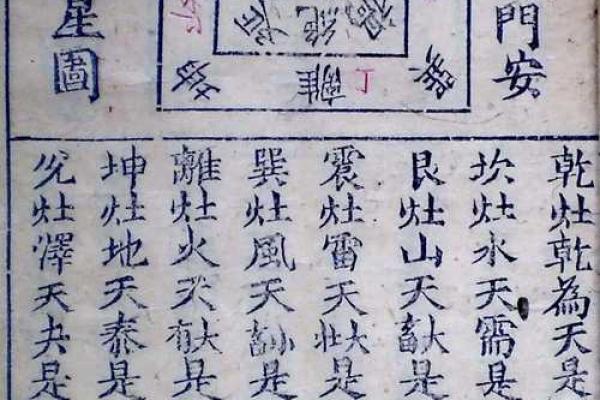 門安
禍絕延
巽離丁坤
星圖
乾灶乾為天是
坎灶水天需是
艮灶山天大畜是
震灶雷天大壯是
巽灶風天小畜是
離灶火天大有是
坤灶地天泰是
兊灶澤天夬是